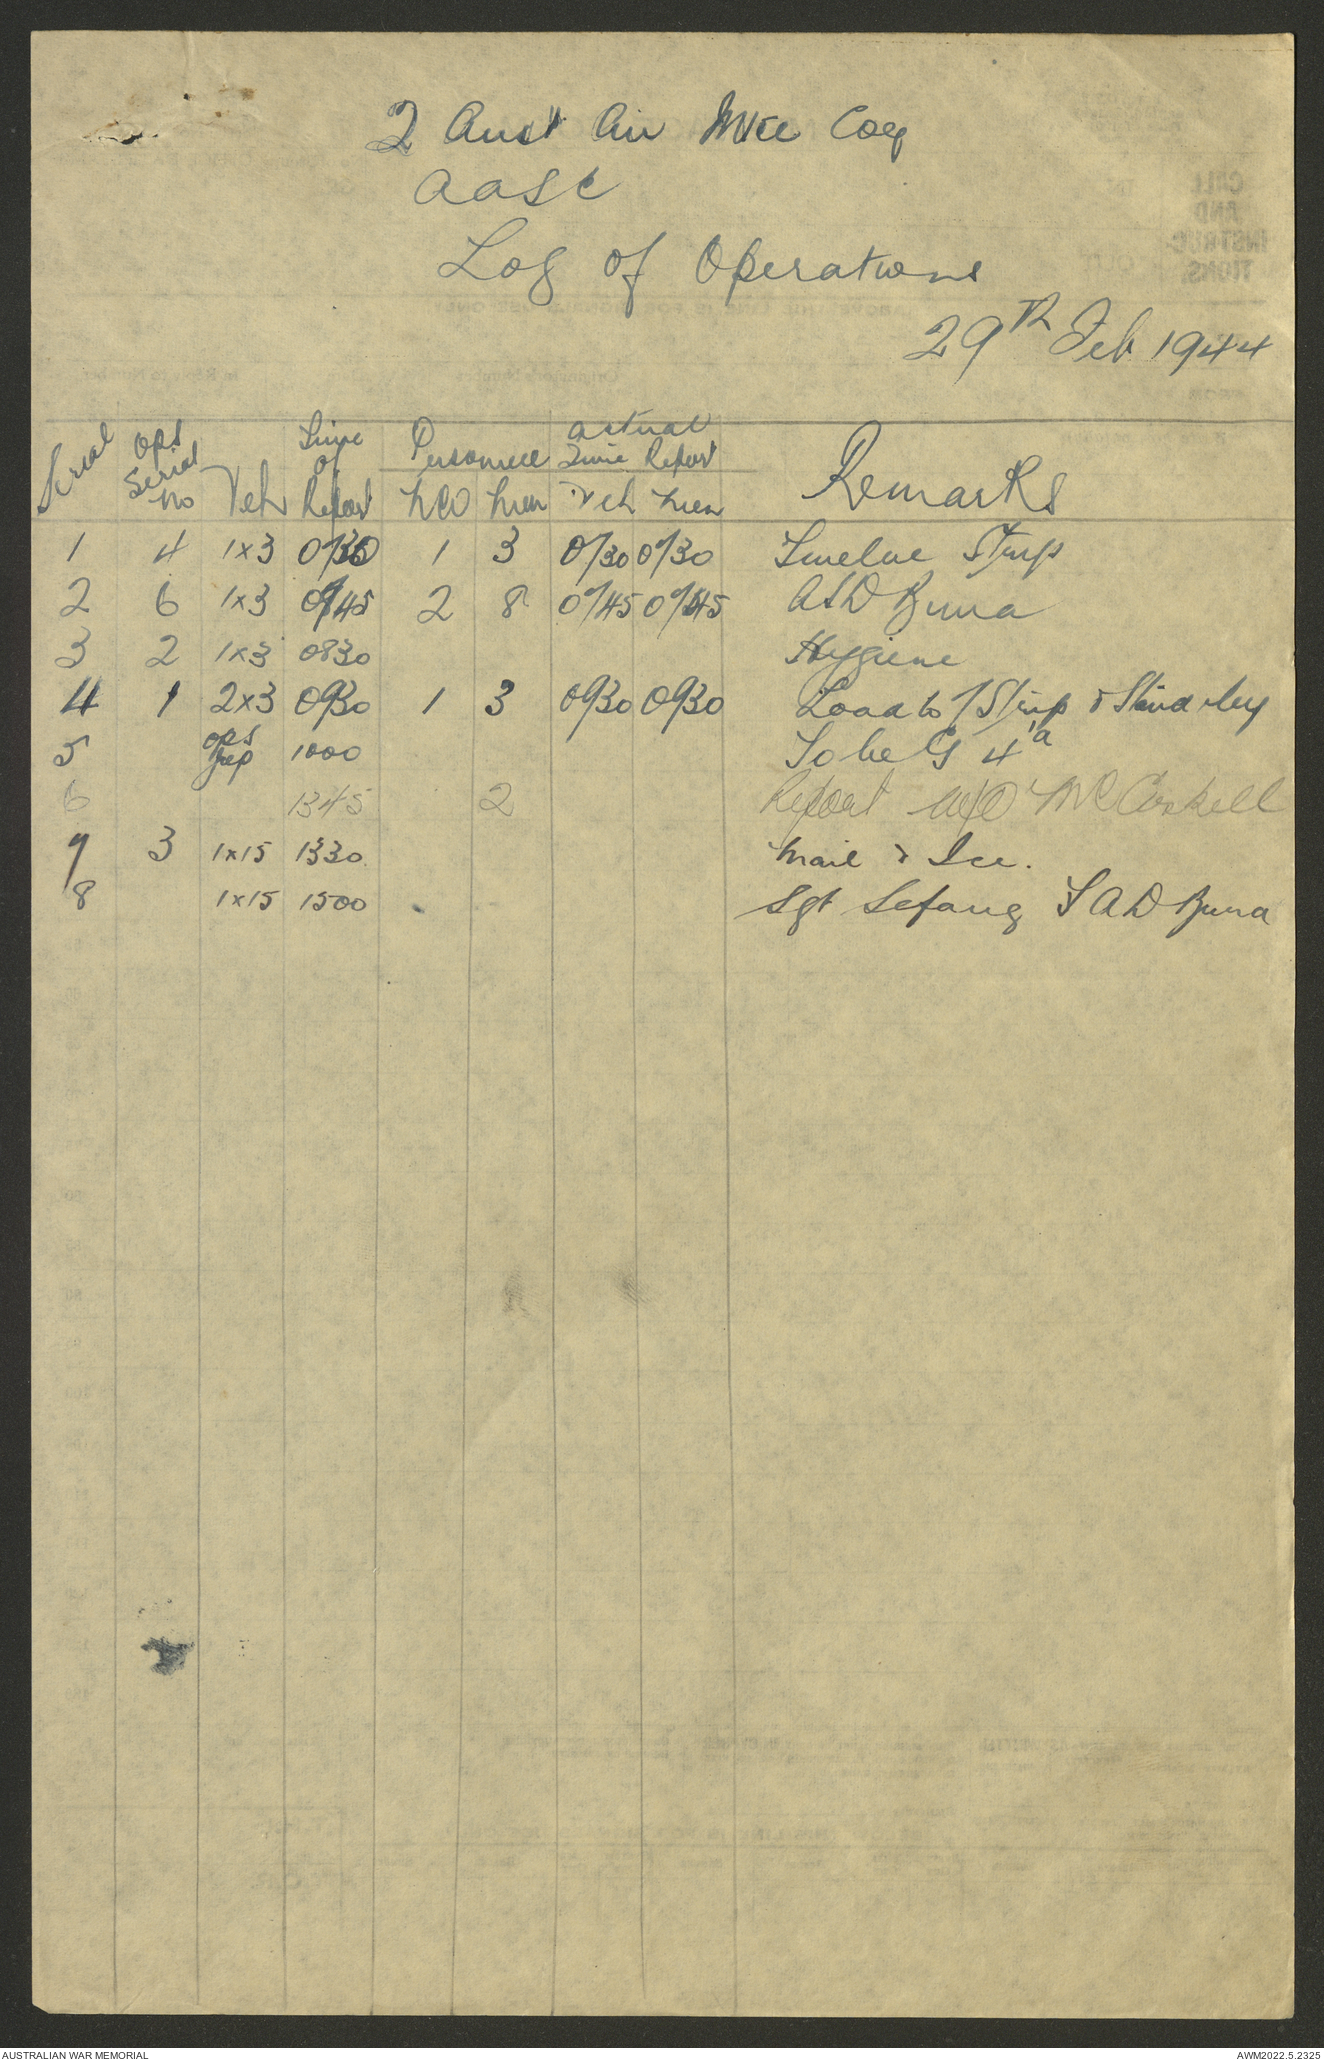 2 Aust Air Mtce Coy
AASC
Log of Operations
29th Feb 1944
Serial Ops Serial No Veh Time of Report Personnel NCO Men Actual Time Report Veh Men Remarks
1 4 1x3 0730 1 3 0730 0730 Twelve Strip
2 6 1x3 0745 2 8 0745 0745 ASD Buna
3 2 1x3 0830 Hygiene
4 1 2x3 0930 1 3 0930 0930 Load to 7 Strip & Standby
5 ops Jeep 1000 To be G 4a
6 1345 2 Report W/O McCaskell
7 3 1x15 1330 Mail & Ice.
8 1x15 1500 Sgt Lefang FAD Buna
CALL AND INSTRUC-TIONS.
AUSTRALIAN WAR MEMORIAL
AWM2022.5.2325